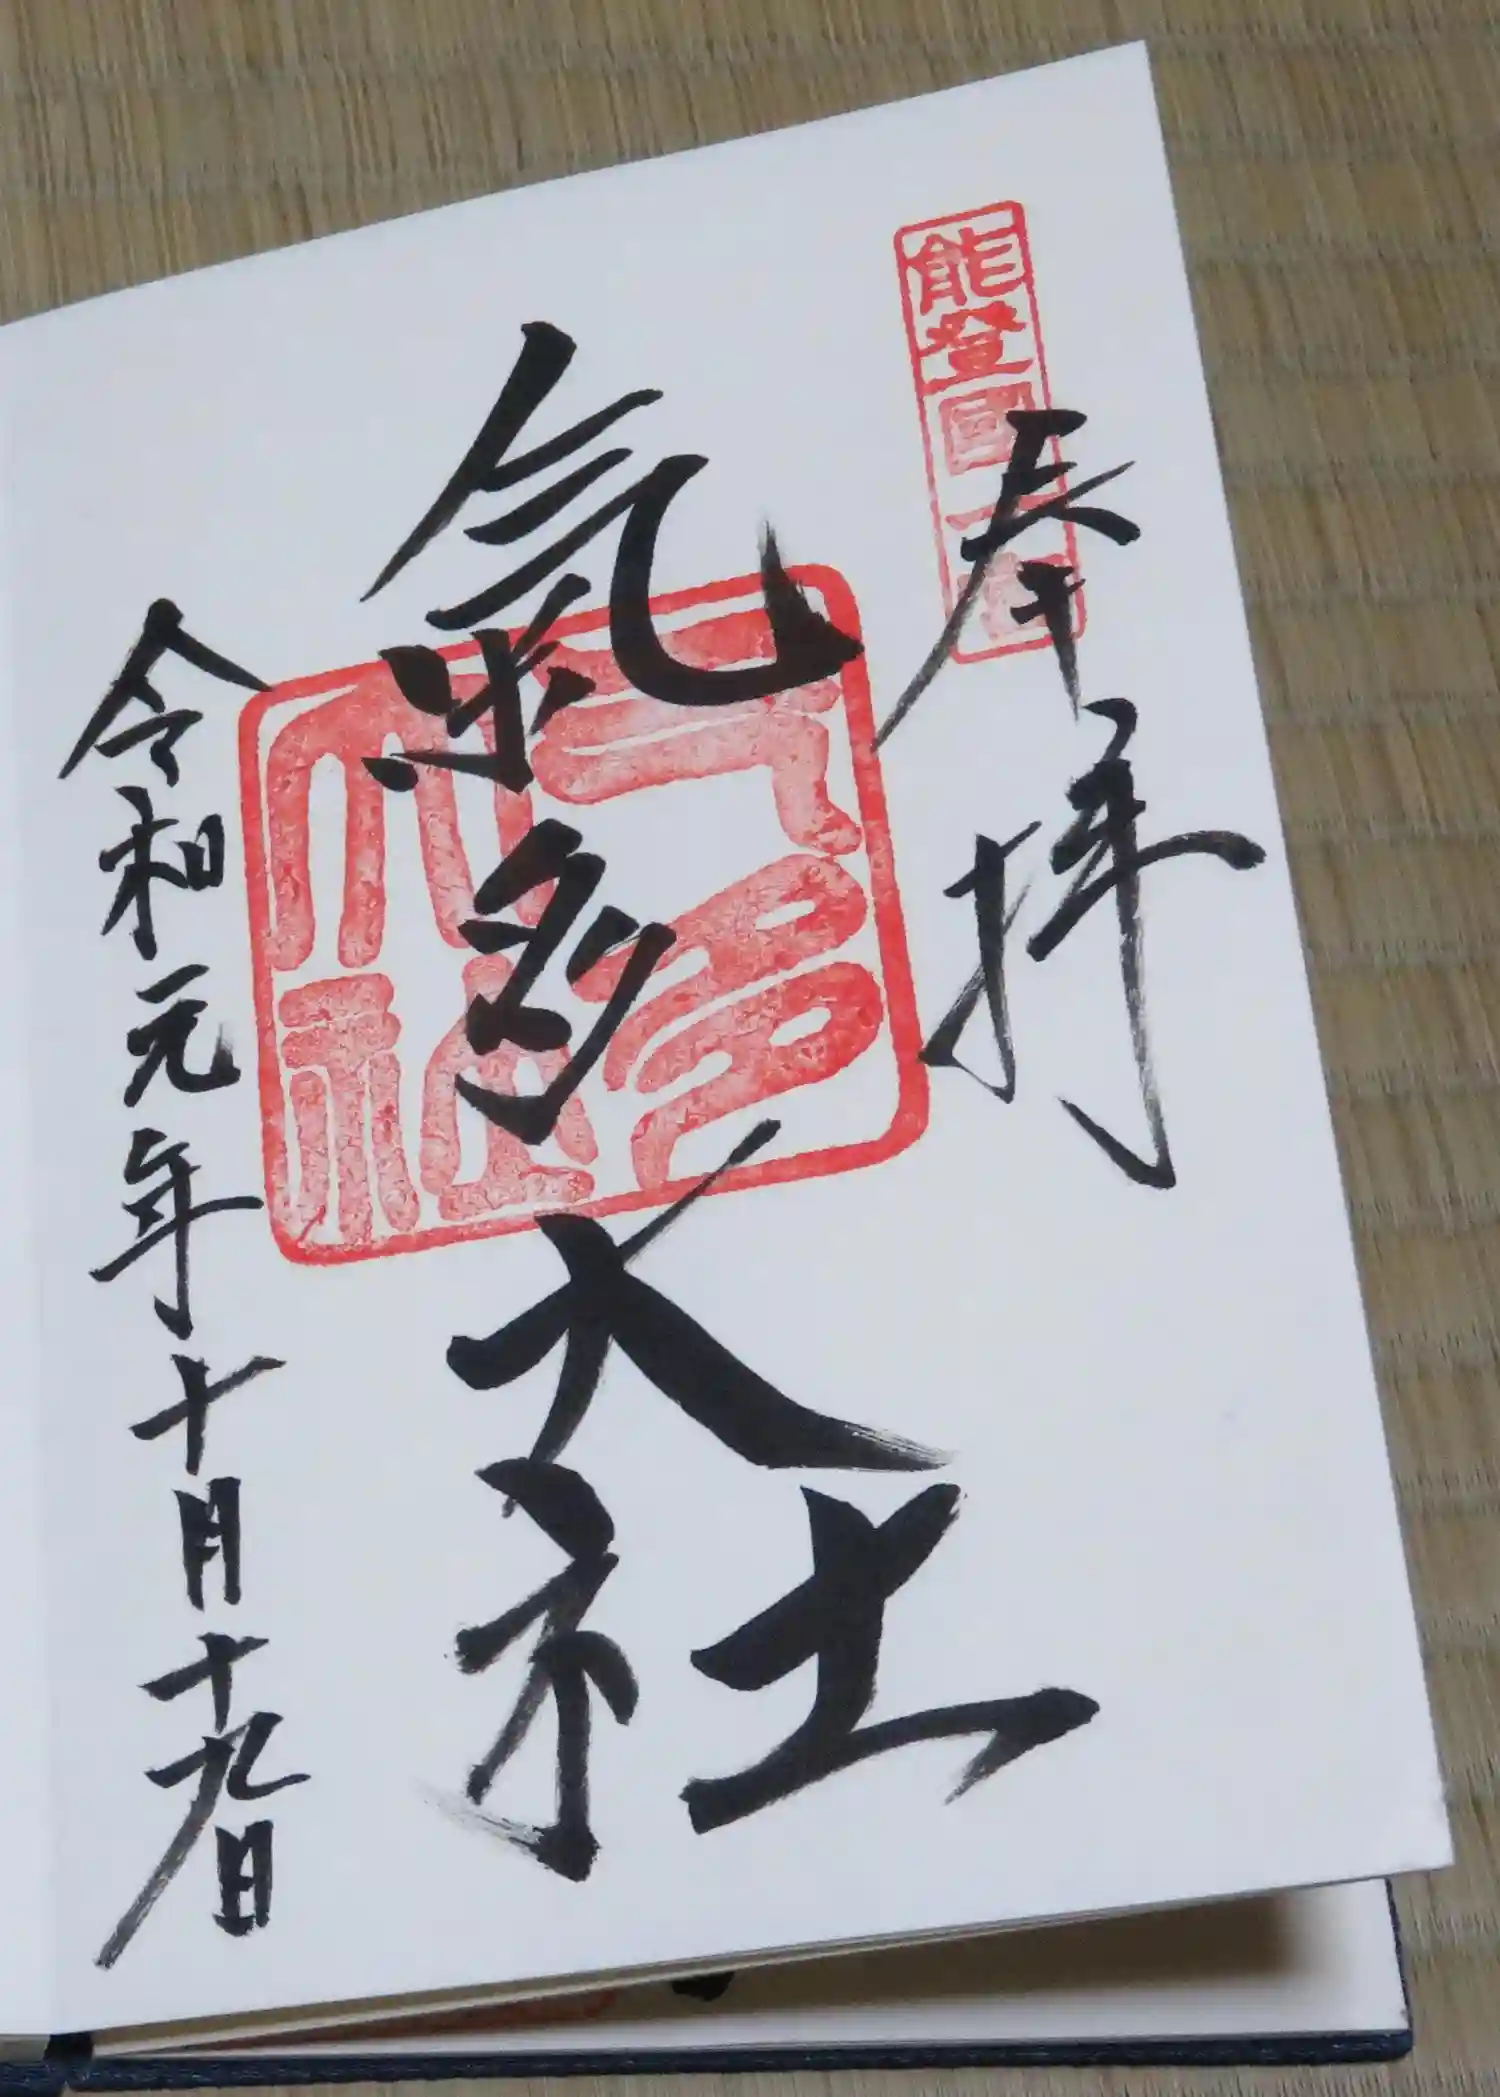 能登國一宮
奉拝
氣多大社
氣多大社
令和元年十月十九日